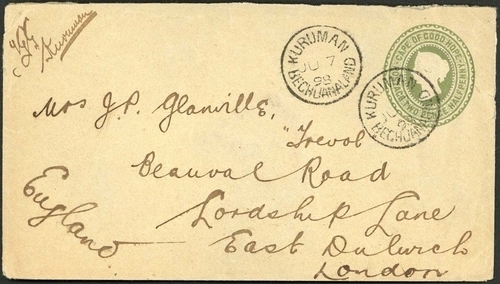 Kuruman
KURUMAN
JU 7
98
BECHUANALAND
CAPE OF GOOD HOPE
HALFPENNY
KURUMAN
98
BECHUANA
Mrs J.P. Glanville,
"Trevol
Beauval Road
Lordship Lane
East Dulwich
London
England